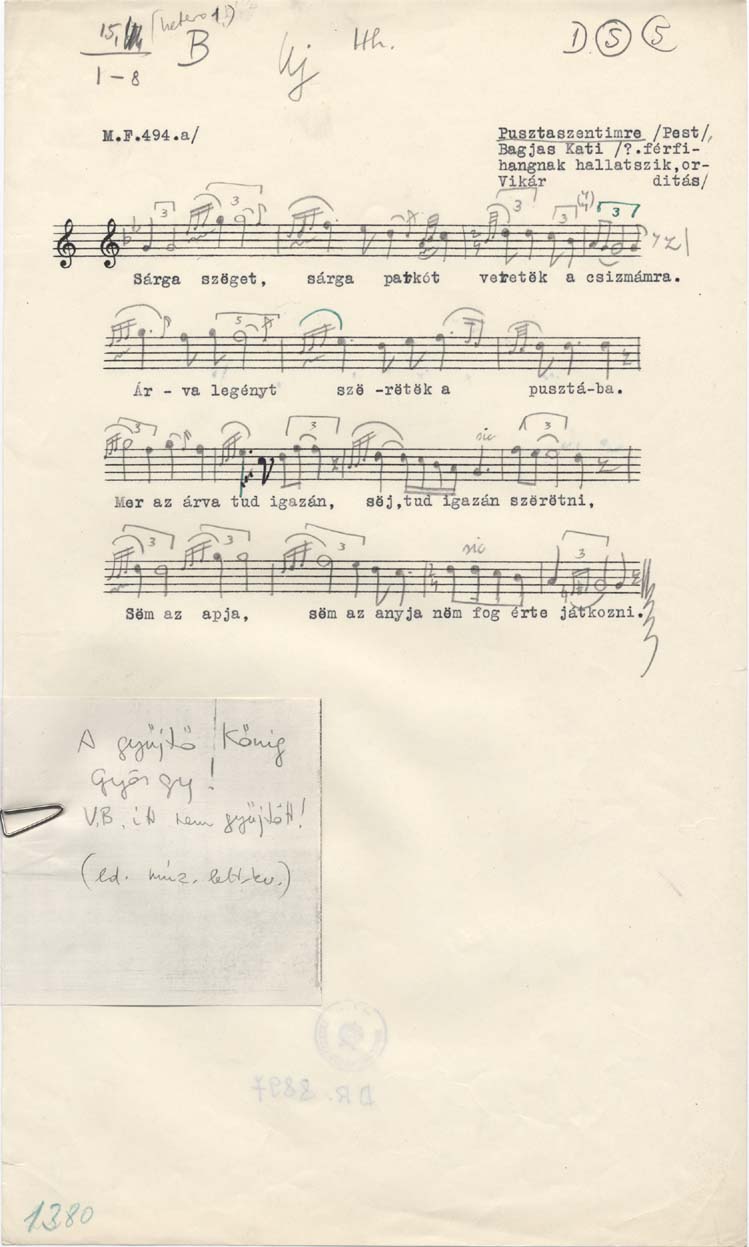 15, (hetero!)
1-8
B
Új
Hh.
1) 5 5
M.F.494.a/
Pusztaszentimre /Pest/,
Bagjas Kati /?.férfi-
hangnak hallatszik,or-
Vikár ditás/
3 3 3 3 3
Sárga szëget, sárga patkót veretëk a csizmámra.
5
Ár - va legényt szë -rëtëk a pusztá-ba.
3 3 sic 3
Mer az árva tud igazán, sëj,tud igazán szërëtni,
3 3 3 sic 3
Sëm az apja, sëm az anyja nëm fog érte játkozni.
A gyűjtő König
György!
V.B. itt nem gyűjtött!
(ld. múz. lelt.kv.)
DR. 8897
1380